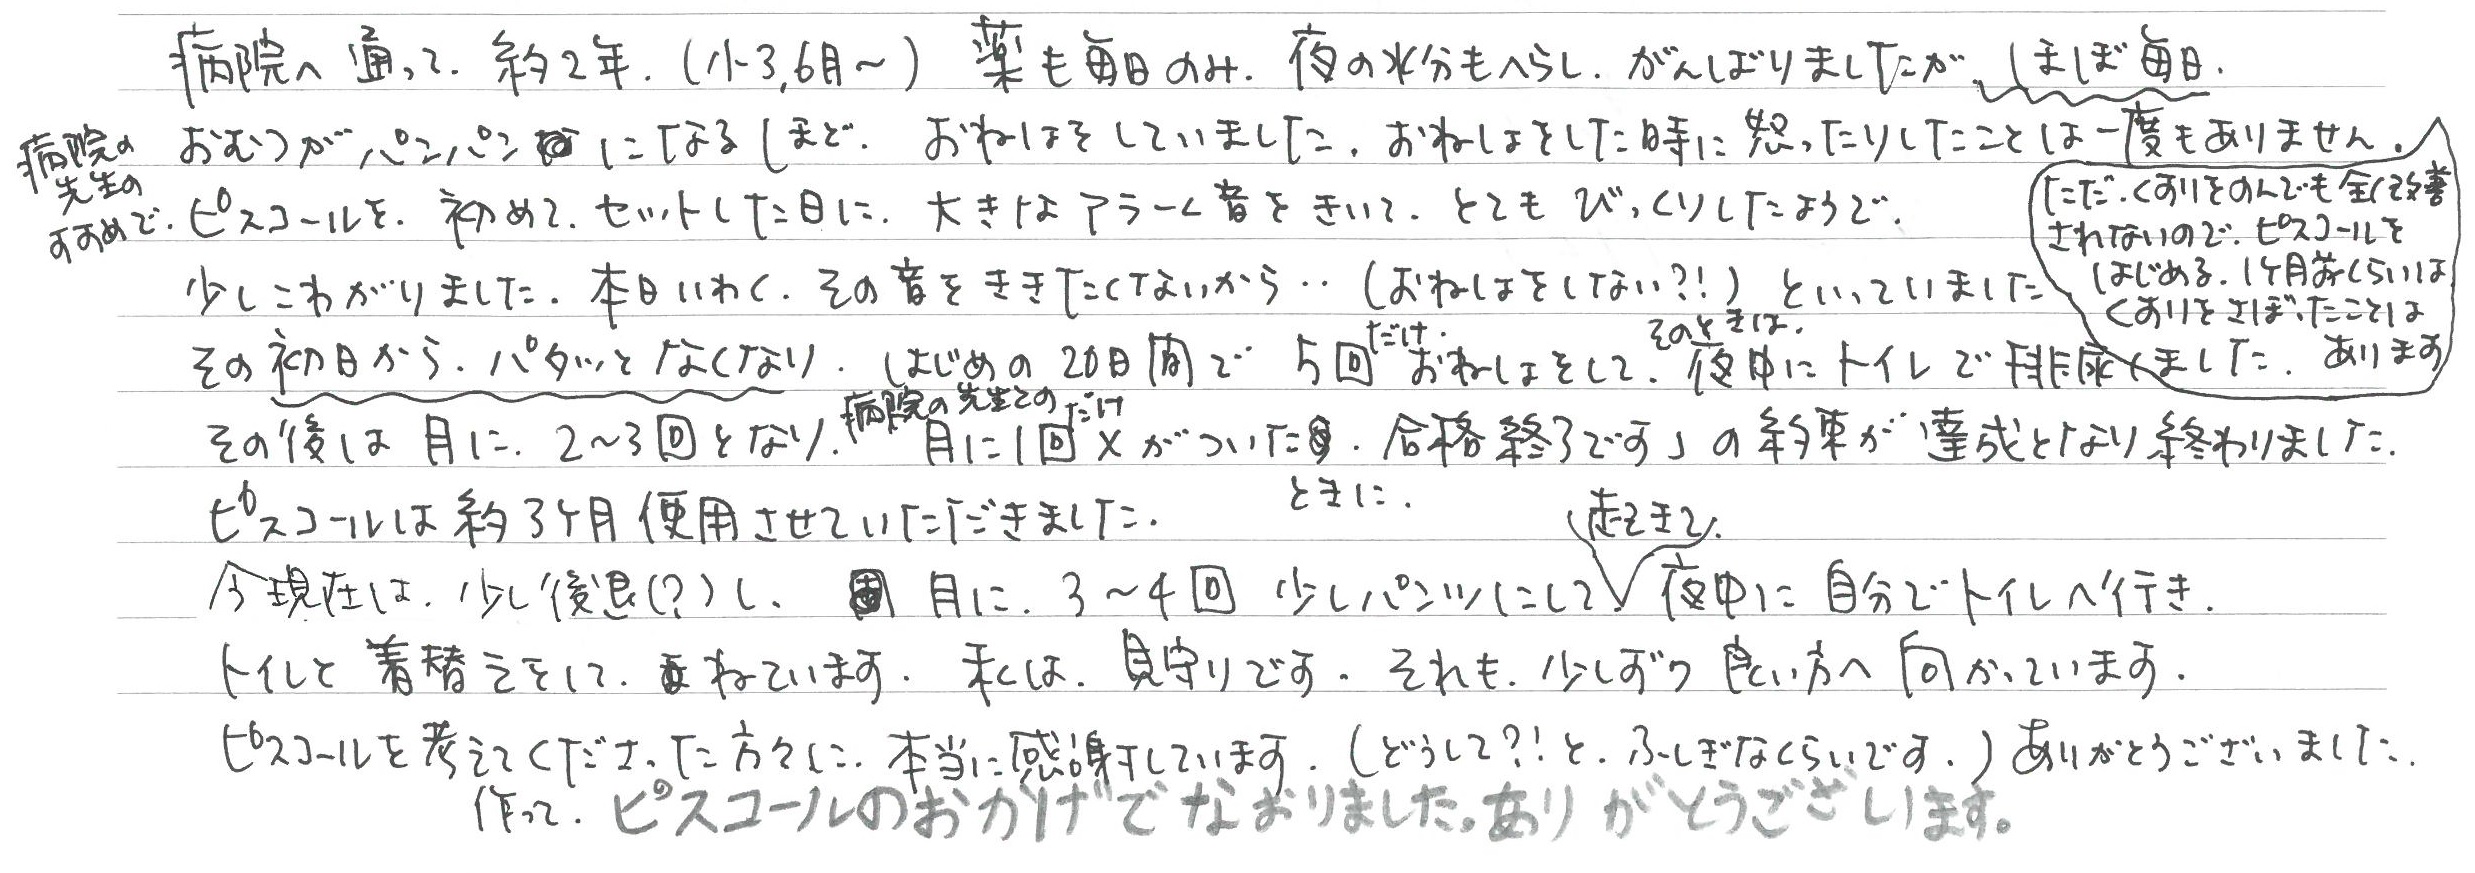 病院へ通って、約2年、(小3,6月〜) 薬も毎日のみ、夜の水分もへらし、がんばりましたが、ほぼ毎日、
おむつがパンパンになるほど、おねしょをしていました。おねしょをした時に怒ったりしたことは一度もありません。
ただ、くすりをのんでも全く改善
されないので、ピスコールを
はじめる、1ヶ月前くらいは
くすりをさぼったことは
あります
病院の
先生の
すすめで、ピスコールを、初めて、セットした日に、大きなアラーム音をきいて、とてもびっくりしたようで、
少しこわがりました。本日いわく、その音をききたくないから‥(おねしょをしない?!)といっていました
その初日から、パタッとなくなり、はじめの20日間で5回だけ、おねしょをして、そのときは、夜中にトイレで排尿しました。
その後は月に、2〜3回となり、病院の先生との 月に1回だけ×がついたときに、合格終了です」の約束が達成となり終わりました。
ピスコールは約3ヶ月使用させていただきました。
今現在は、少し後退(?)し、月に、3〜4回少しパンツにして、起きて、夜中に自分でトイレへ行き、
トイレと着替えをして、ねています。私は、見守りです。それも、少しずつ良い方へ向かっています。
ピスコールを考えてくださった方々に、本当に感謝しています。(どうして?!と、ふしぎなくらいです。)ありがとうございました。
作って、
ピスコールのおかげでなおりました。ありがとうございます。